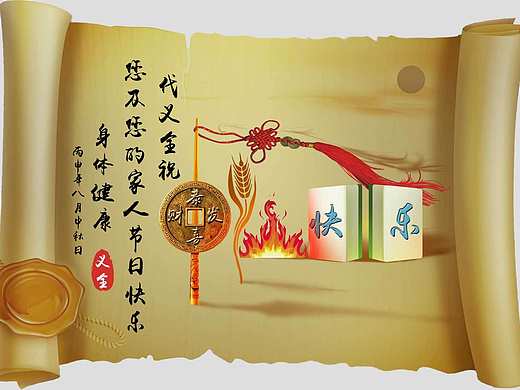 代义全祝
您及您的家人节日快乐
身体健康
丙申年八月中秋日
义全
恭喜发财
快乐